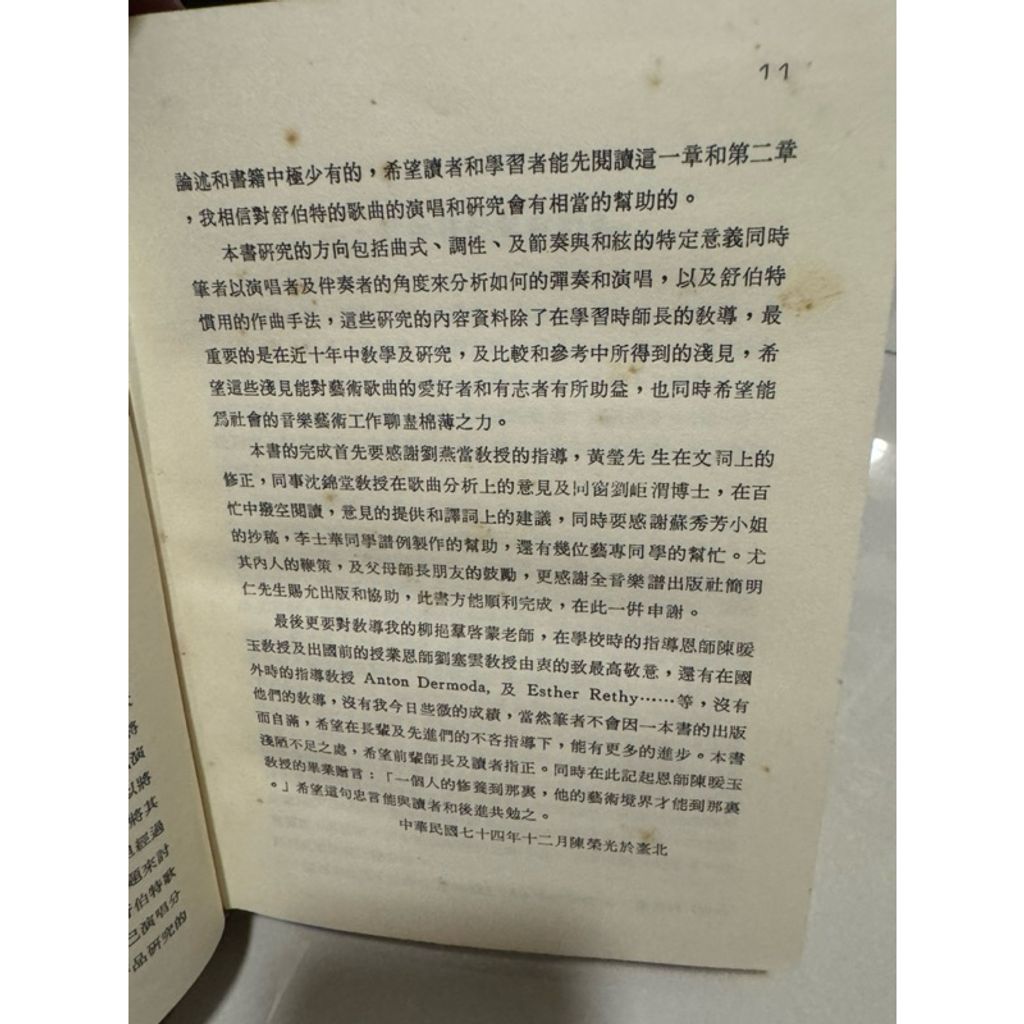 11
論述和書籍中極少有的，希望讀者和學習者能先閱讀這一章和第二章
，我相信對舒伯特的歌曲的演唱和研究會有相當的幫助的。
本書研究的方向包括曲式、調性、及節奏與和絃的特定意義同時
筆者以演唱者及伴奏者的角度來分析如何的彈奏和演唱，以及舒伯特
慣用的作曲手法，這些研究的內容資料除了在學習時師長的教導，最
重要的是在近十年中教學及研究，及比較和參考中所得到的淺見，希
望這些淺見能對藝術歌曲的愛好者和有志者有所助益，也同時希望能
爲社會的音樂藝術工作聊盡棉薄之力。
本書的完成首先要感謝劉燕當教授的指導，黃瑩先生在文詞上的
修正，同事沈錦堂教授在歌曲分析上的意見及同窗劉岠渭博士，在百
忙中撥空閱讀，意見的提供和譯詞上的建議，同時要感謝蘇秀芳小姐
的抄稿，李士華同學譜例製作的幫助，還有幾位藝專同學的幫忙。尤
其內人的鞭策，及父母師長朋友的鼓勵，更感謝全音樂譜出版社簡明
仁先生賜允出版和協助，此書方能順利完成，在此一併申謝。
最後更要對教導我的柳挹羣啓蒙老師，在學校時的指導恩師陳暖
玉教授及出國前的授業恩師劉塞雲教授由衷的致最高敬意，還有在國
外時的指導教授 Anton Dermoda, 及 Esther Rethy……等，沒有
他們的教導，沒有我今日些微的成績，當然筆者不會因一本書的出版
而自滿，希望在長輩及先進們的不吝指導下，能有更多的進步。本書
淺陋不足之處，希望前輩師長及讀者指正。同時在此記起恩師陳暖玉
教授的畢業贈言：「一個人的修養到那裏，他的藝術境界才能到那裏
。」希望這句忠言能與讀者和後進共勉之。
中華民國七十四年十二月陳榮光於臺北
將
演
以將
將其
且經過
題來討
舒伯特歌
己演唱分
品研究的